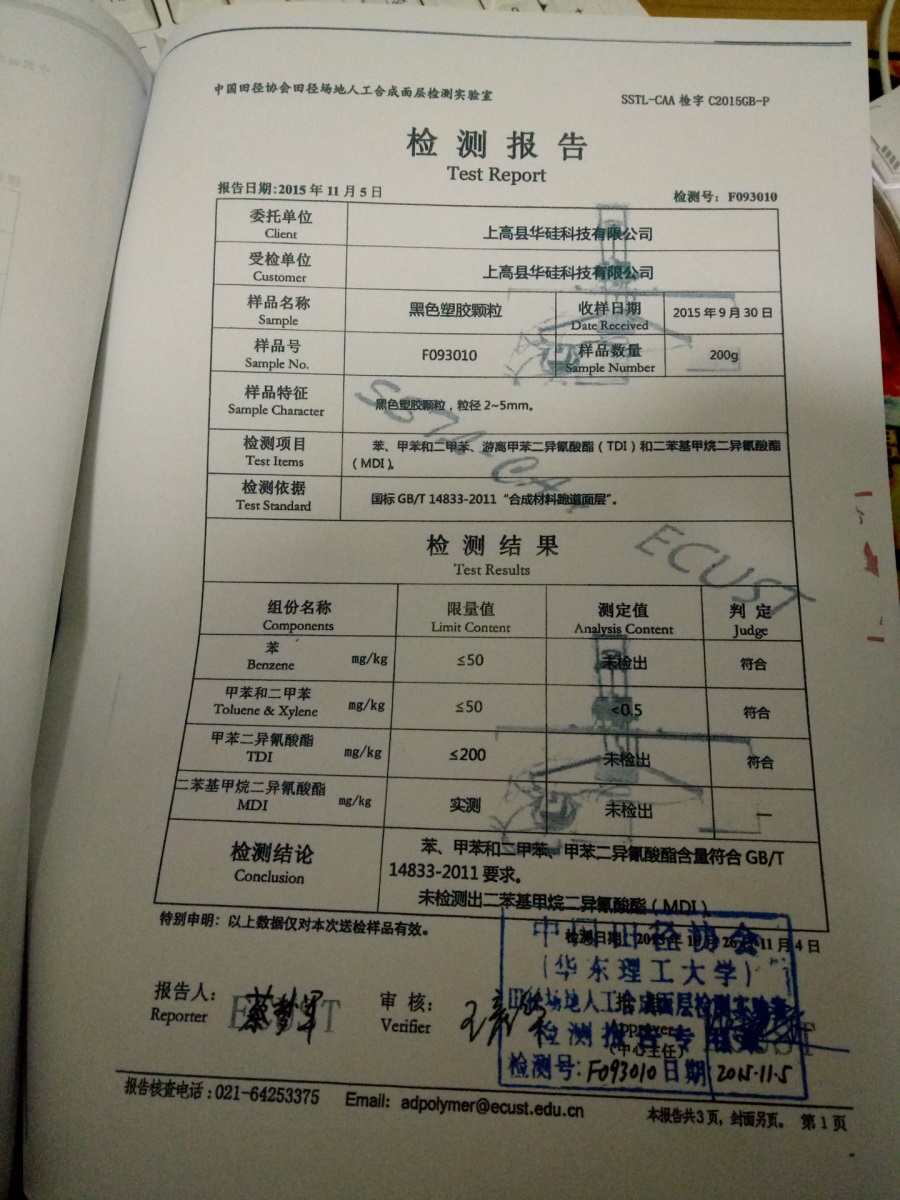 中国田径协会田径场地人工合成面层检测实验室
SSTL-CAA 检字 C2015GB-P
检测报告
Test Report
报告日期:2015年11月5日
检测号：F093010
委托单位
Client
上高县华硅科技有限公司
受检单位
Customer
上高县华硅科技有限公司
样品名称
Sample
黑色塑胶颗粒
收样日期
Date Received
2015年9月30日
样品号
Sample No.
F093010
样品数量
Sample Number
200g
样品特征
Sample Character
黑色塑胶颗粒，粒径2~5mm。
检测项目
Test Items
苯、甲苯和二甲苯、游离甲苯二异氰酸酯（TDI）和二苯基甲烷二异氰酸酯
（MDI）。
检测依据
Test Standard
国标 GB/T 14833-2011“合成材料跑道面层”。
SSTL-CAA ECUST
检测结果
Test Results
组份名称
Components
限量值
Limit Content
测定值
Analysis Content
判定
Judge
苯
Benzene
mg/kg
≤50
未检出
符合
甲苯和二甲苯
Toluene & Xylene
mg/kg
≤50
<0.5
符合
甲苯二异氰酸酯
TDI
mg/kg
≤200
未检出
符合
二苯基甲烷二异氰酸酯
MDI
mg/kg
实测
未检出
—
检测结论
Conclusion
苯、甲苯和二甲苯、甲苯二异氰酸酯含量符合 GB/T
14833-2011 要求。
未检测出二苯基甲烷二异氰酸酯（MDI）。
特别申明：以上数据仅对本次送检样品有效。
检测日期：2015年10月26日-11月4日
中国田径协会
（华东理工大学）
田径场地人工合成面层检测实验室
检测报告专用章
检测号：F093010日期2015.11.5
报告人：
Reporter
ECUST
审核：
Verifier
Approver
（中心主任）
ECUST
报告核查电话：021-64253375
Email: adpolymer@ecust.edu.cn
本报告共3页，封面另页。 第1页